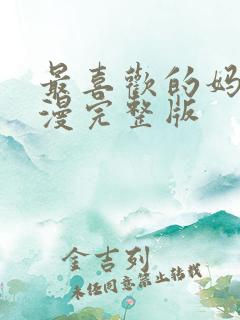 最喜歡的妈
漫完整版
金吉列
未经同意禁止转载